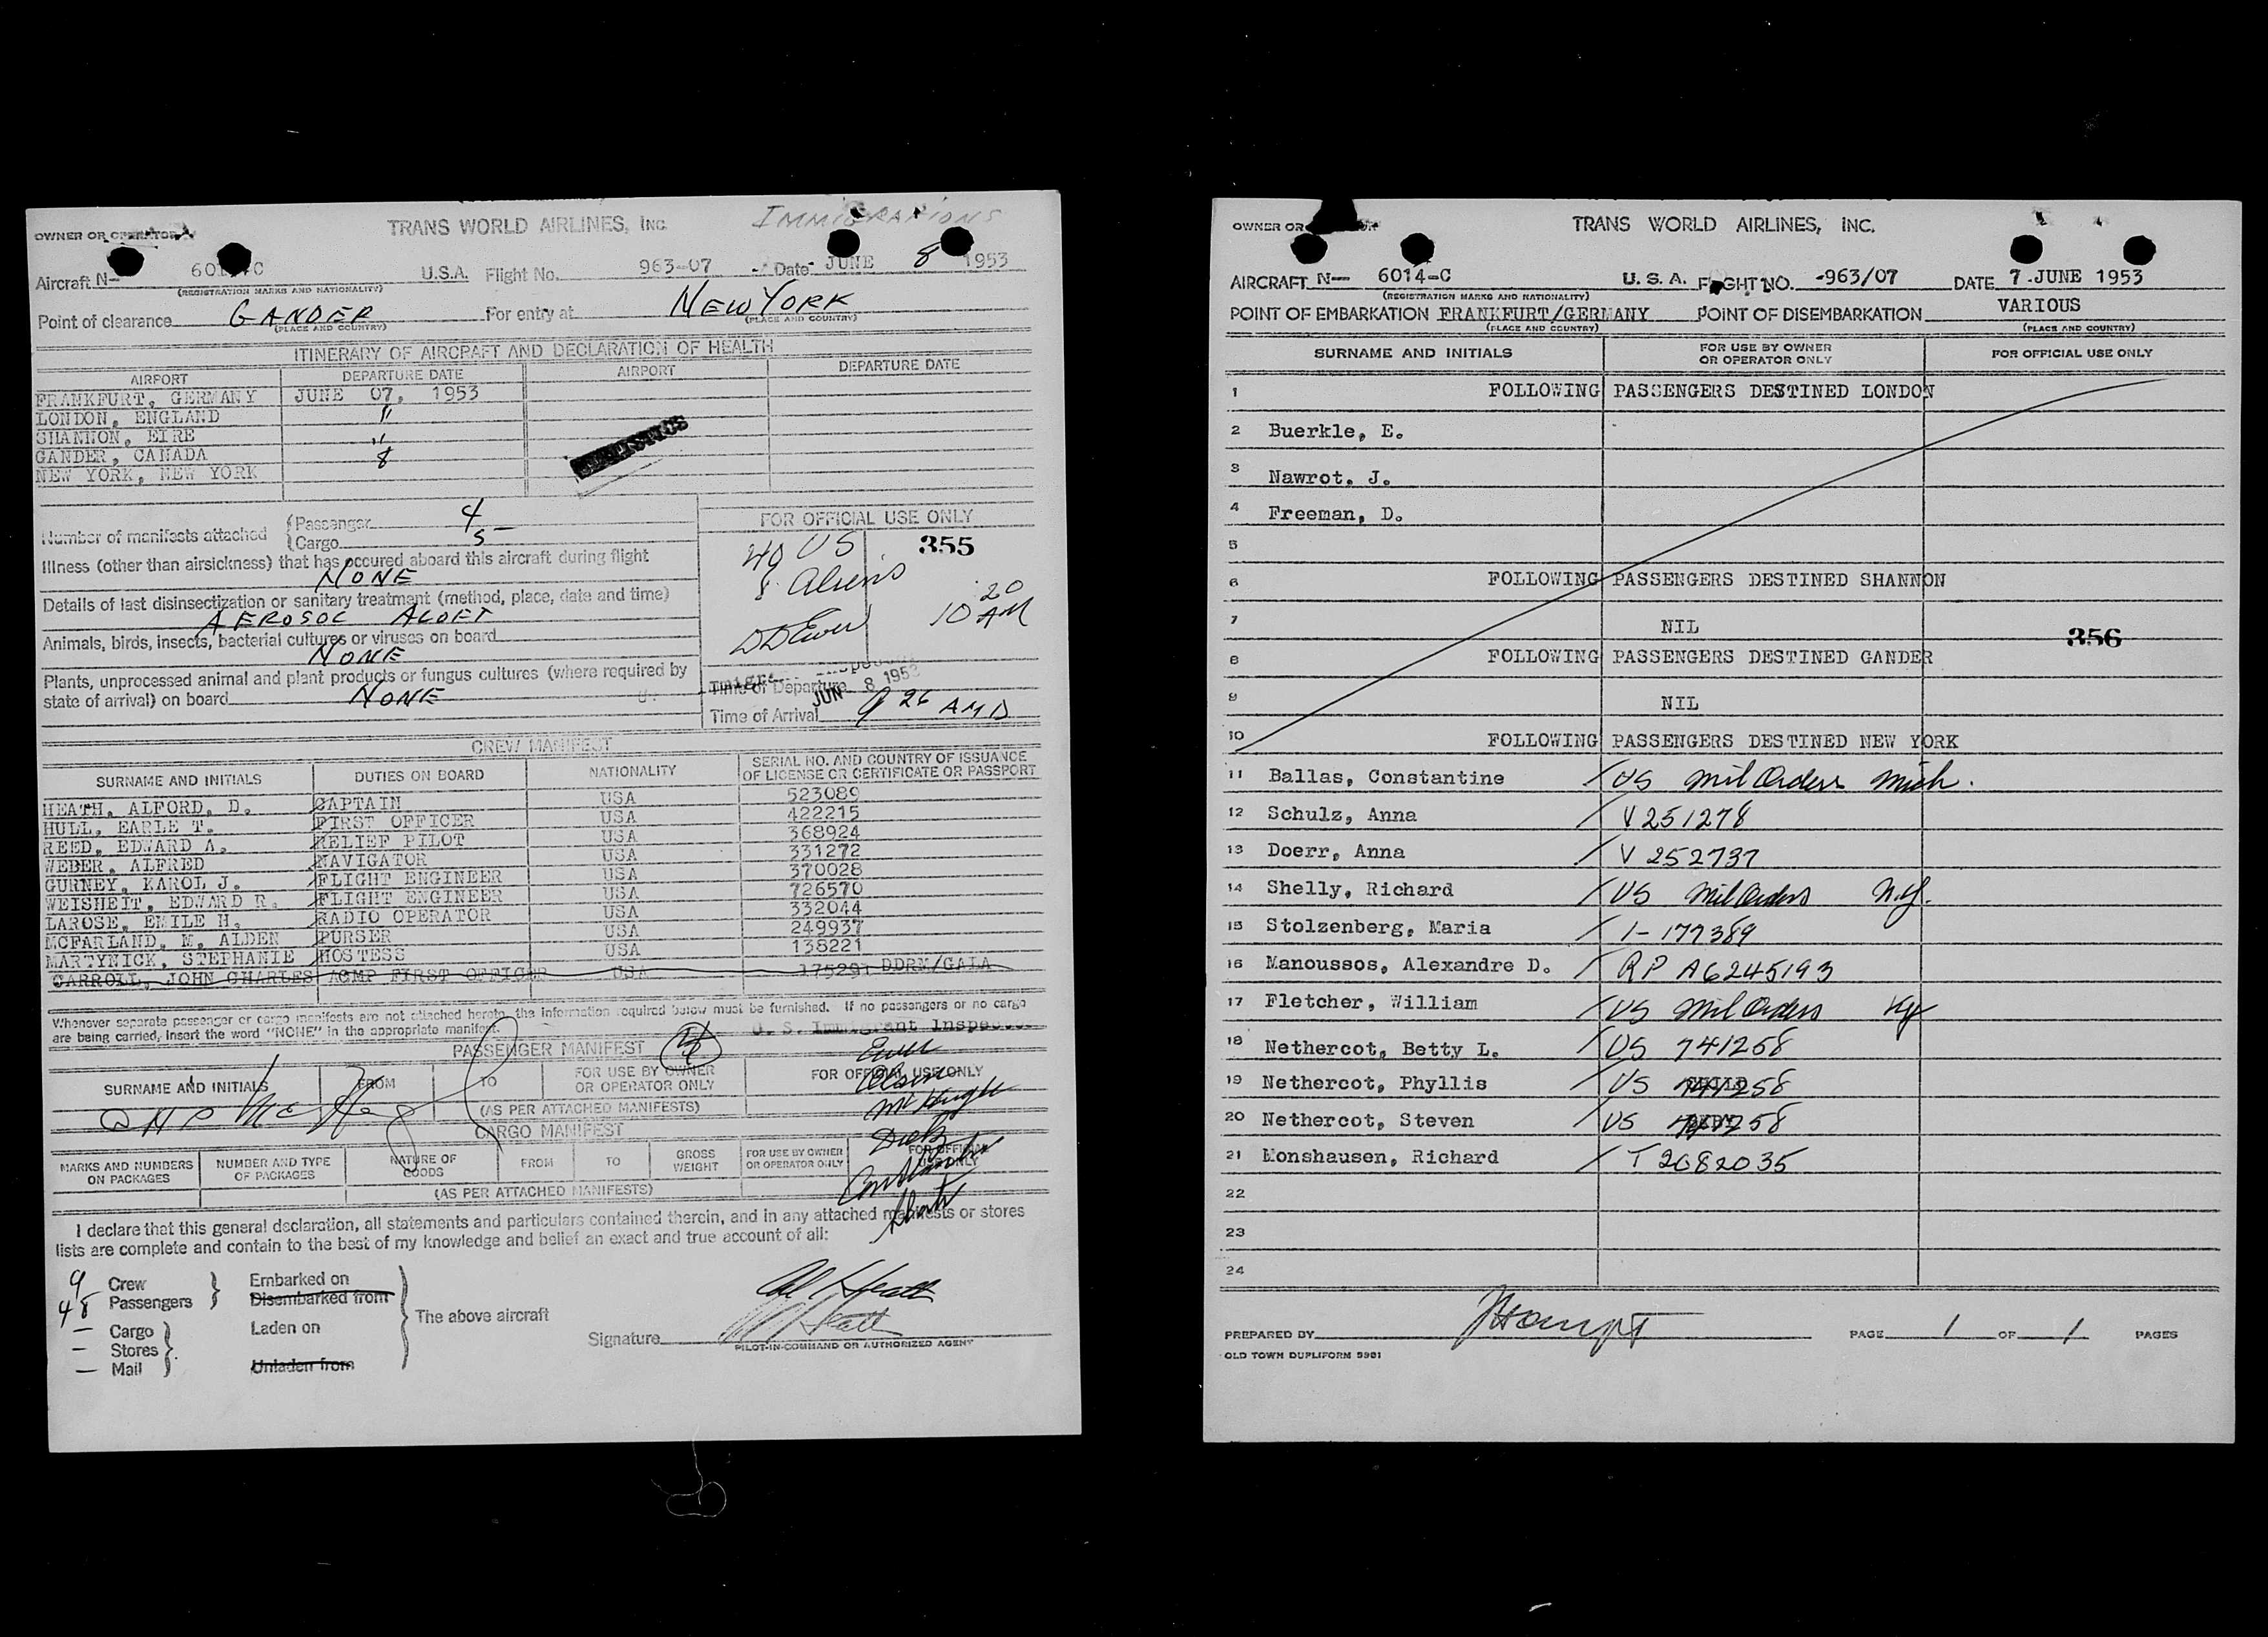 IMMIGRATIONS
OWNER OR OPERATOR TRANS WORLD AIRLINES, INC.
Aircraft N- U.S.A. Flight No. 963-07 Date JUNE 8 1953
(REGISTRATION MARKS AND NATIONALITY)
Point of clearance GANDER For entry at NEW YORK
(PLACE AND COUNTRY) (PLACE AND COUNTRY)
ITINERARY OF AIRCRAFT AND DECLARATION OF HEALTH
AIRPORT DEPARTURE DATE AIRPORT DEPARTURE DATE
FRANKFURT, GERMANY JUNE 07, 1953
LONDON, ENGLAND "
SHANNON, EIRE "
GANDER, CANADA 8
NEW YORK, NEW YORK
Number of manifests attached Passenger 4
Cargo 5
Illness (other than airsickness) that has occured aboard this aircraft during flight
NONE
Details of last disinsectization or sanitary treatment (method, place, date and time)
AEROSOL ALOFT
Animals, birds, insects, bacterial cultures or viruses on board
NONE
Plants, unprocessed animal and plant products or fungus cultures (where required by
state of arrival) on board NONE
FOR OFFICIAL USE ONLY
40 US 355
8 Aliens
DDEwer 10 20 AM
Time of Departure JUN 8 1953
Time of Arrival 9 26 AM
CREW MANIFEST
SURNAME AND INITIALS DUTIES ON BOARD NATIONALITY SERIAL NO. AND COUNTRY OF ISSUANCE
OF LICENSE OR CERTIFICATE OR PASSPORT
HEATH, ALFORD, D. CAPTAIN USA 523089
HULL, EARLE T. FIRST OFFICER USA 422215
REED, EDWARD A. RELIEF PILOT USA 368924
WEBER, ALFRED NAVIGATOR USA 331272
GURNEY, KAROL J. FLIGHT ENGINEER USA 370028
WEISHEIT, EDWARD R. FLIGHT ENGINEER USA 726570
LAROSE, EMILE H. RADIO OPERATOR USA 332044
MCFARLAND, M. ALDEN PURSER USA 249937
MARTYNICK, STEPHANIE HOSTESS USA 138221
CARROLL, JOHN CHARLES ACMP FIRST OFFICER USA 175291 DDRM/GALA
Whenever separate passenger or cargo manifests are not attached hereto, the information required below must be furnished. If no passengers or no cargo
are being carried, insert the word "NONE" in the appropriate manifest.
U. S. Immigrant Inspector
PASSENGER MANIFEST
SURNAME AND INITIALS FROM TO FOR USE BY OWNER OR OPERATOR ONLY FOR OFFICIAL USE ONLY
(AS PER ATTACHED MANIFESTS)
Ewer
Olson
McHugh
CARGO MANIFEST
MARKS AND NUMBERS ON PACKAGES NUMBER AND TYPE OF PACKAGES NATURE OF GOODS FROM TO GROSS WEIGHT FOR USE BY OWNER OR OPERATOR ONLY FOR OFFICIAL USE ONLY
(AS PER ATTACHED MANIFESTS)
I declare that this general declaration, all statements and particulars contained therein, and in any attached manifests or stores
lists are complete and contain to the best of my knowledge and belief an exact and true account of all:
9 Crew Embarked on
48 Passengers Disembarked from
— Cargo Laden on The above aircraft
— Stores
— Mail Unladen from
Signature
PILOT-IN-COMMAND OR AUTHORIZED AGENT
OWNER OR TRANS WORLD AIRLINES, INC.
AIRCRAFT N- 6014-C U. S. A. FLIGHT NO. -963/07 DATE 7 JUNE 1953
(REGISTRATION MARKS AND NATIONALITY)
POINT OF EMBARKATION FRANKFURT/GERMANY POINT OF DISEMBARKATION VARIOUS
(PLACE AND COUNTRY) (PLACE AND COUNTRY)
SURNAME AND INITIALS FOR USE BY OWNER OR OPERATOR ONLY FOR OFFICIAL USE ONLY
1 FOLLOWING PASSENGERS DESTINED LONDON
2 Buerkle, E.
3 Nawrot, J.
4 Freeman, D.
5
6 FOLLOWING PASSENGERS DESTINED SHANNON
7 NIL
356
8 FOLLOWING PASSENGERS DESTINED GANDER
9 NIL
10 FOLLOWING PASSENGERS DESTINED NEW YORK
11 Ballas, Constantine US Mil Orders Mich.
12 Schulz, Anna V 251278
13 Doerr, Anna V 252737
14 Shelly, Richard US Mil Orders N.Y.
15 Stolzenberg, Maria I-177389
16 Manoussos, Alexandre D. RP A6245193
17 Fletcher, William US Mil Orders Ky
18 Nethercot, Betty L. US 741258
19 Nethercot, Phyllis US 741258
20 Nethercot, Steven US 741258
21 Monshausen, Richard T 2682035
22
23
24
PREPARED BY PAGE 1 OF 1 PAGES
OLD TOWN DUPLIFORM 5901